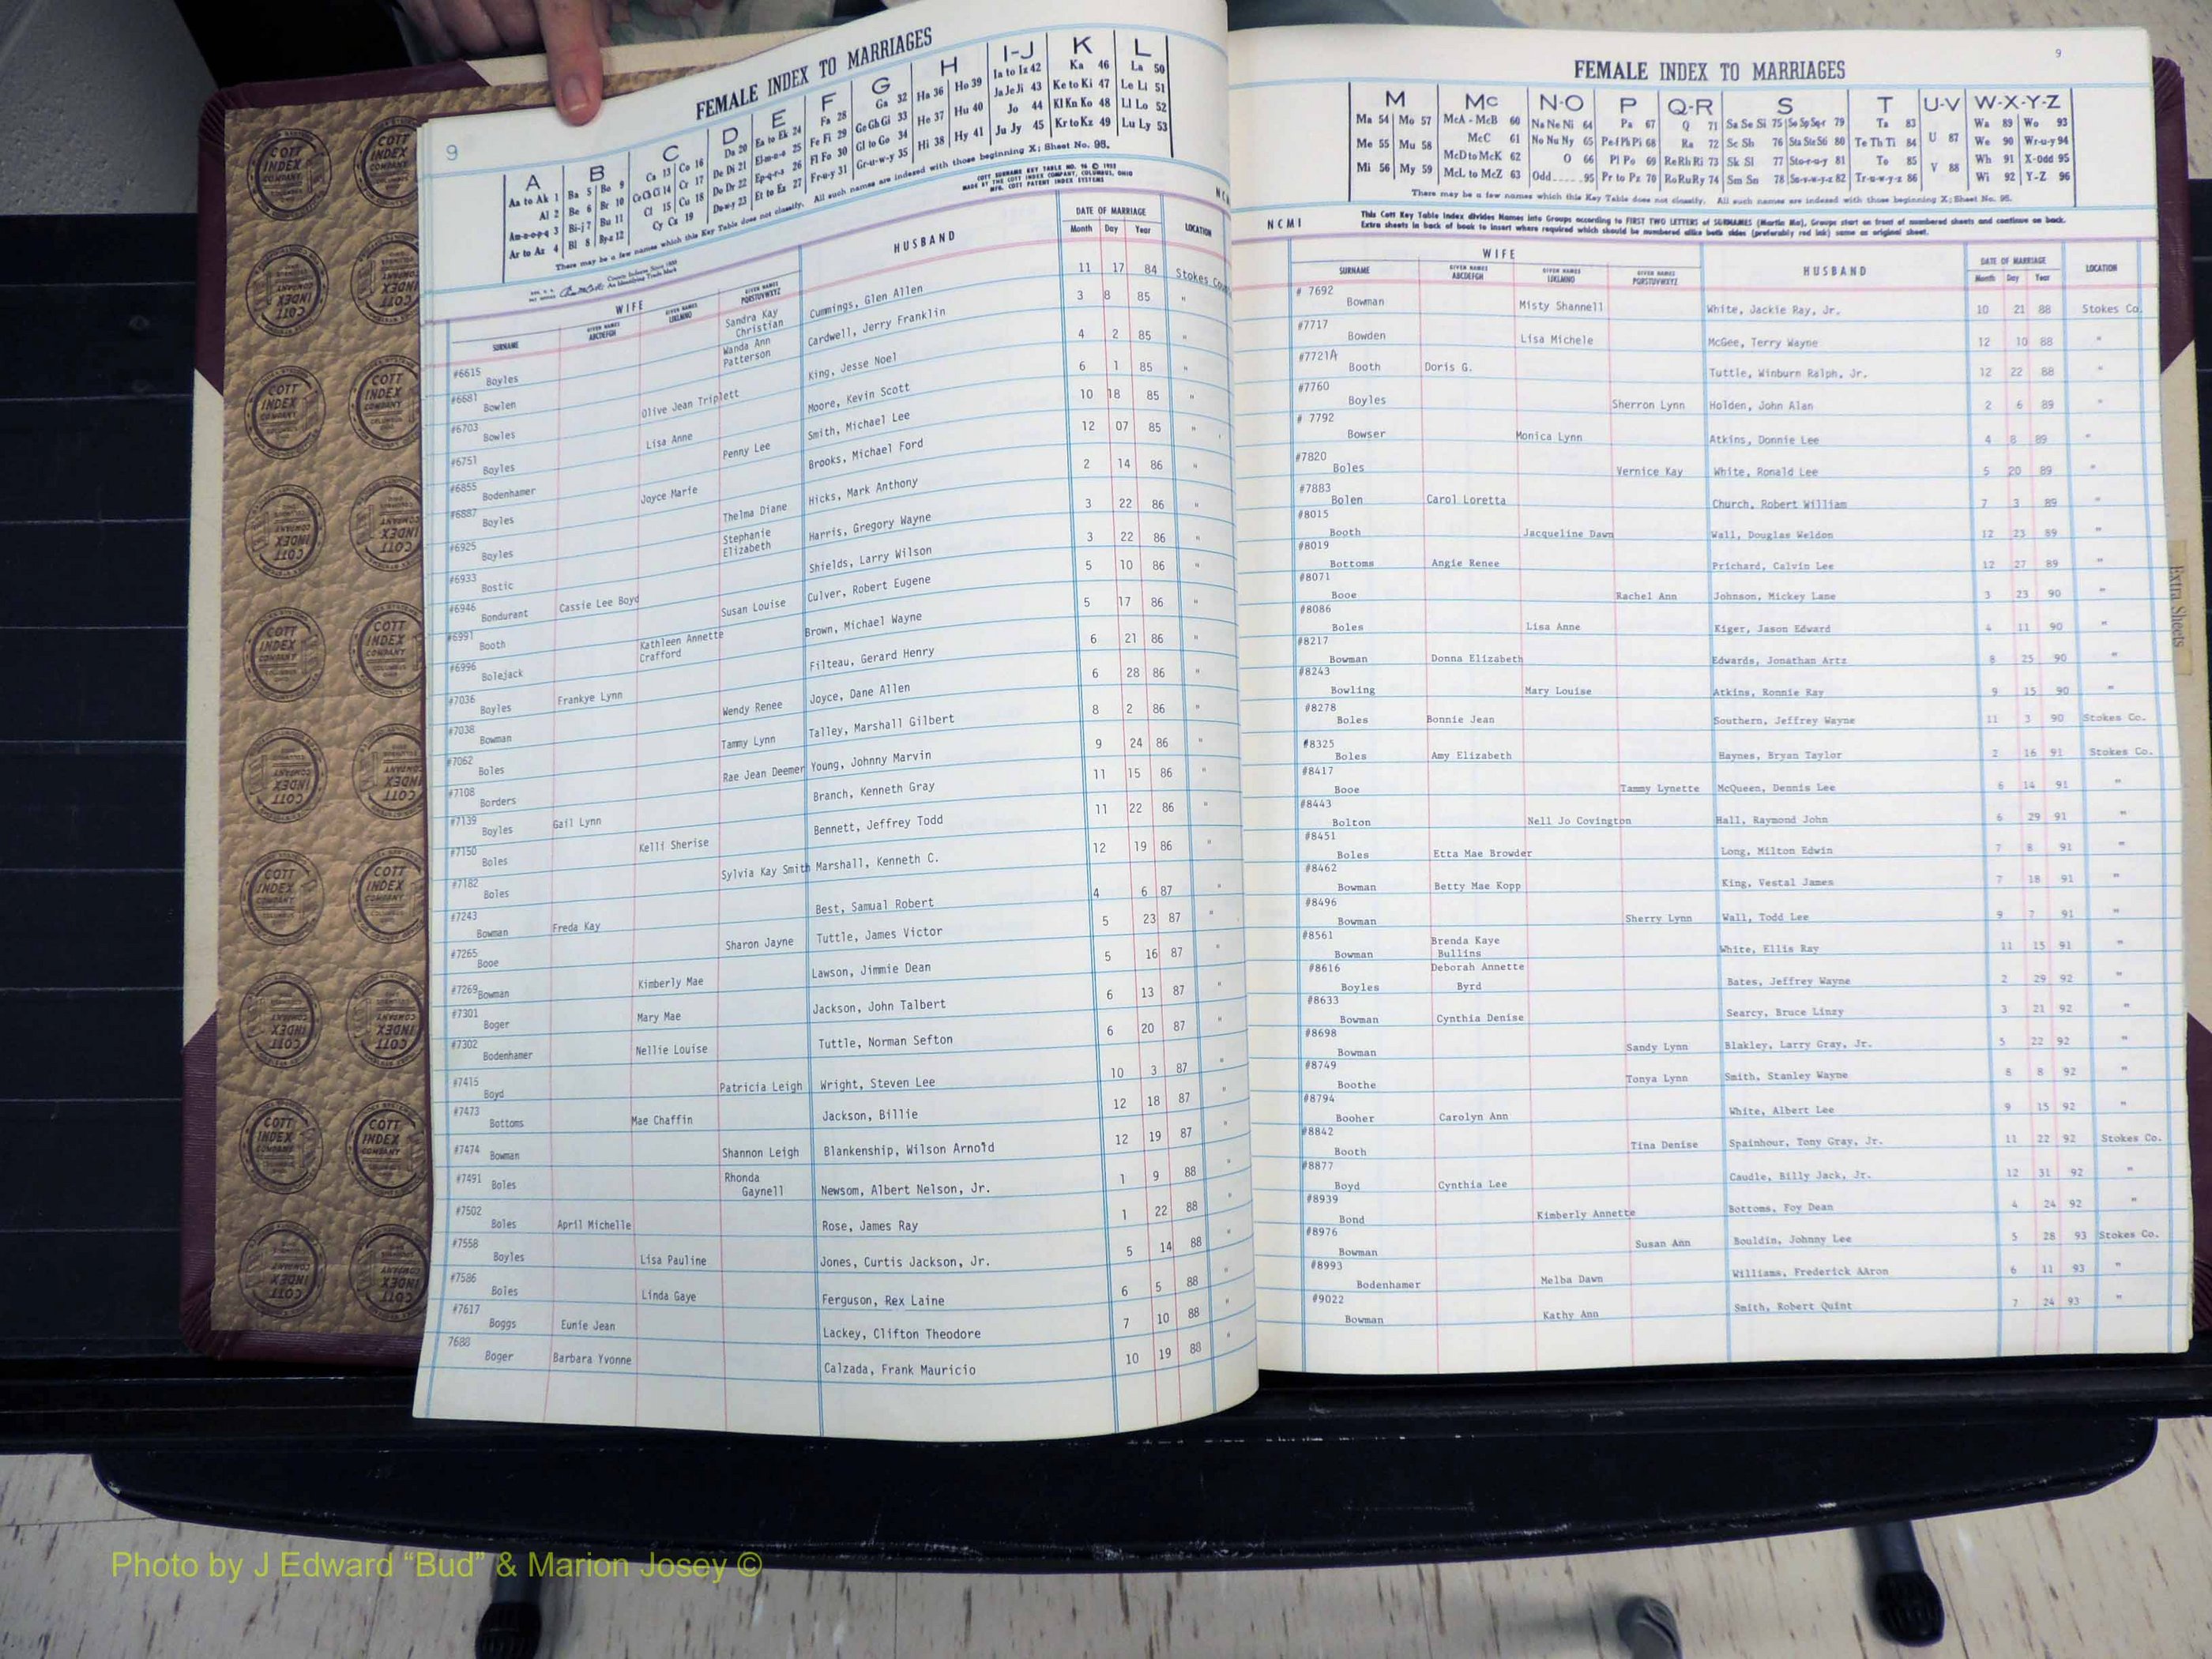 9
FEMALE INDEX TO MARRIAGES
A B C D E F G H I-J K L
Aa to Ak 1 Ba 5 Bo 9 Ca 13 Co 16 Da 20 Ea to Ek 24 Fa 28 Ga 32 Ha 36 Ho 39 Ia to Iz 42 Ka 46 La 50
Al 2 Be 6 Br 10 Ce Ch Ci 14 Cr 17 De Di 21 El-m-n-o 25 Fe Fi 29 Ge Gh Gi 33 He 37 Hu 40 Ja Je Ji 43 Ke to Ki 47 Le Li 51
Am-n-o-p-q 3 Bi-j 7 Bu 11 Cl 15 Cu 18 Do Dr 22 Ep-q-r-s 26 Fl Fo 30 Gl to Go 34 Hi 38 Hy 41 Jo 44 Kl Kn Ko 48 Ll Lo 52
Ar to Az 4 Bl 8 By-z 12 Cy Cz 19 Du-w-y 23 Et to Ez 27 Fr-u-y 31 Gr-u-w-y 35 Ju Jy 45 Kr to Kz 49 Lu Ly 53
There may be a few names which this Key Table does not classify. All such names are indexed with those beginning X; Sheet No. 98.
COTT SURNAME KEY TABLE NO. 96 © 1952
MADE BY THE COTT INDEX COMPANY, COLUMBUS, OHIO
MFR. COTT PATENT INDEX SYSTEMS
WIFE HUSBAND DATE OF MARRIAGE LOCATION
SURNAME GIVEN NAMES ABCDEFGH GIVEN NAMES IJKLMNO GIVEN NAMES PQRSTUVWXYZ Month Day Year
#6615 Boyles Sandra Kay Christian Cummings, Glen Allen 11 17 84 Stokes
#6681 Bowlen Wanda Ann Patterson Cardwell, Jerry Franklin 3 8 85 "
#6703 Bowles Olive Jean Triplett King, Jesse Noel 4 2 85 "
#6751 Boyles Lisa Anne Moore, Kevin Scott 6 1 85 "
#6855 Bodenhamer Penny Lee Smith, Michael Lee 10 18 85 "
#6887 Boyles Joyce Marie Brooks, Michael Ford 12 07 85 "
#6925 Boyles Thelma Diane Hicks, Mark Anthony 2 14 86 "
#6933 Bostic Stephanie Elizabeth Harris, Gregory Wayne 3 22 86 "
#6946 Bondurant Cassie Lee Boyd Shields, Larry Wilson 3 22 86 "
#6991 Booth Susan Louise Culver, Robert Eugene 5 10 86 "
#6996 Bolejack Kathleen Annette Crafford Brown, Michael Wayne 5 17 86 "
#7036 Boyles Frankye Lynn Filteau, Gerard Henry 6 21 86 "
#7038 Bowman Wendy Renee Joyce, Dane Allen 6 28 86 "
#7062 Boles Tammy Lynn Talley, Marshall Gilbert 8 2 86 "
#7108 Borders Rae Jean Deemer Young, Johnny Marvin 9 24 86 "
#7139 Boyles Gail Lynn Branch, Kenneth Gray 11 15 86 "
#7150 Boles Kelli Sherise Bennett, Jeffrey Todd 11 22 86 "
#7182 Boles Sylvia Kay Smith Marshall, Kenneth C. 12 19 86 "
#7243 Bowman Freda Kay Best, Samual Robert 4 6 87 "
#7265 Booe Sharon Jayne Tuttle, James Victor 5 23 87 "
#7269 Bowman Kimberly Mae Lawson, Jimmie Dean 5 16 87 "
#7301 Boger Mary Mae Jackson, John Talbert 6 13 87 "
#7302 Bodenhamer Nellie Louise Tuttle, Norman Sefton 6 20 87 "
#7415 Boyd Patricia Leigh Wright, Steven Lee 10 3 87 "
#7473 Bottoms Mae Chaffin Jackson, Billie 12 18 87 "
#7474 Bowman Shannon Leigh Blankenship, Wilson Arnold 12 19 87 "
#7491 Boles Rhonda Gaynell Newsom, Albert Nelson, Jr. 1 9 88 "
#7502 Boles April Michelle Rose, James Ray 1 22 88 "
#7558 Boyles Lisa Pauline Jones, Curtis Jackson, Jr. 5 14 88 "
#7586 Boles Linda Gaye Ferguson, Rex Laine 6 5 88 "
#7617 Boggs Eunie Jean Lackey, Clifton Theodore 7 10 88 "
7688 Boger Barbara Yvonne Calzada, Frank Mauricio 10 19 88 "
9
FEMALE INDEX TO MARRIAGES
M Mc N-O P Q-R S T U-V W-X-Y-Z
Ma 54 Mo 57 McA - McB 60 Na Ne Ni 64 Pa 67 Q 71 Sa Se Si 75 So Sp Sq-r 79 Ta 83 U 87 Wa 89 Wo 93
Me 55 Mu 58 McC 61 No Nu Ny 65 Pe-f Ph Pi 68 Ra 72 Sc Sh 76 Sta Ste Sti 80 Te Th Ti 84 V 88 We 90 Wr-u-y 94
Mi 56 My 59 McD to McK 62 O 66 Pl Po 69 Re Rh Ri 73 Sk Sl 77 Sto-r-u-y 81 To 85 Wh 91 X-Odd 95
McL to McZ 63 Odd......95 Pr to Pz 70 Ro Ru Ry 74 Sm Sn 78 Su-v-w-y-z 82 Tr-u-w-y-z 86 Wi 92 Y-Z 96
There may be a few names which this Key Table does not classify. All such names are indexed with those beginning X; Sheet No. 98.
NCMI
This Cott Key Table Index divides Names into Groups according to FIRST TWO LETTERS of SURNAMES (Martin Ma), Groups start on front of numbered sheets and continue on back.
Extra sheets in back of book to insert where required which should be numbered alike both sides (preferably red ink) same as original sheet.
WIFE HUSBAND DATE OF MARRIAGE LOCATION
SURNAME GIVEN NAMES ABCDEFGH GIVEN NAMES IJKLMNO GIVEN NAMES PQRSTUVWXYZ Month Day Year
# 7692 Bowman Misty Shannell White, Jackie Ray, Jr. 10 21 88 Stokes Co.
#7717 Bowden Lisa Michele McGee, Terry Wayne 12 10 88 "
#7721A Booth Doris G. Tuttle, Winburn Ralph, Jr. 12 22 88 "
#7760 Boyles Sherron Lynn Holden, John Alan 2 6 89 "
# 7792 Bowser Monica Lynn Atkins, Donnie Lee 4 8 89 "
#7820 Boles Vernice Kay White, Ronald Lee 5 20 89 "
#7883 Bolen Carol Loretta Church, Robert William 7 3 89 "
#8015 Booth Jacqueline Dawn Wall, Douglas Weldon 12 23 89 "
#8019 Bottoms Angie Renee Prichard, Calvin Lee 12 27 89 "
#8071 Booe Rachel Ann Johnson, Mickey Lane 3 23 90 "
#8086 Boles Lisa Anne Kiger, Jason Edward 4 11 90 "
#8217 Bowman Donna Elizabeth Edwards, Jonathan Artz 8 25 90 "
#8243 Bowling Mary Louise Atkins, Ronnie Ray 9 15 90 "
#8278 Boles Bonnie Jean Southern, Jeffrey Wayne 11 3 90 Stokes Co.
#8325 Boles Amy Elizabeth Haynes, Bryan Taylor 2 16 91 Stokes Co.
#8417 Booe Tammy Lynette McQueen, Dennis Lee 6 14 91 "
#8443 Bolton Nell Jo Covington Hall, Raymond John 6 29 91 "
#8451 Boles Etta Mae Browder Long, Milton Edwin 7 8 91 "
#8462 Bowman Betty Mae Kopp King, Vestal James 7 18 91 "
#8496 Bowman Sherry Lynn Wall, Todd Lee 9 7 91 "
#8561 Bowman Brenda Kaye Bullins White, Ellis Ray 11 15 91 "
#8616 Boyles Deborah Annette Byrd Bates, Jeffrey Wayne 2 29 92 "
#8633 Bowman Cynthia Denise Searcy, Bruce Linzy 3 21 92 "
#8698 Bowman Sandy Lynn Blakley, Larry Gray, Jr. 5 22 92 "
#8749 Boothe Tonya Lynn Smith, Stanley Wayne 8 8 92 "
#8794 Booher Carolyn Ann White, Albert Lee 9 15 92 "
#8842 Booth Tina Denise Spainhour, Tony Gray, Jr. 11 22 92 Stokes Co.
#8877 Boyd Cynthia Lee Caudle, Billy Jack, Jr. 12 31 92 "
#8939 Bond Kimberly Annette Bottoms, Foy Dean 4 24 92 "
#8976 Bowman Susan Ann Bouldin, Johnny Lee 5 28 93 Stokes Co.
#8993 Bodenhamer Melba Dawn Williams, Frederick AAron 6 11 93 "
#9022 Bowman Kathy Ann Smith, Robert Quint 7 24 93 "
Extra Sheets
COTT INDEX COMPANY
Photo by J Edward “Bud” & Marion Josey ©